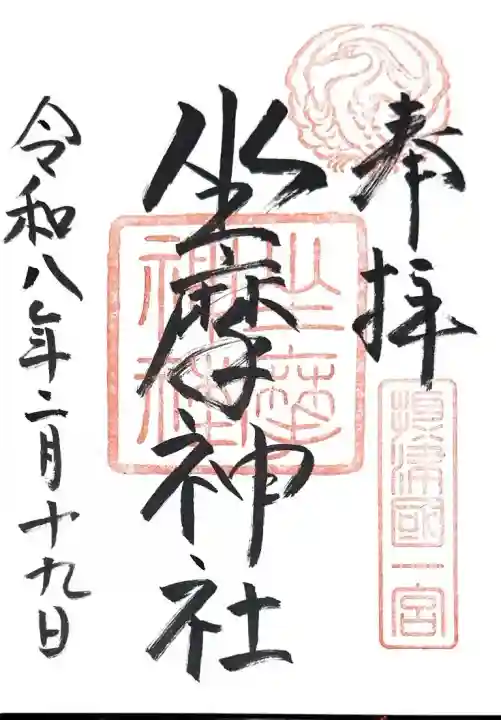 奉拝
摂津國一宮
坐摩神社
坐摩神社
令和八年二月十九日